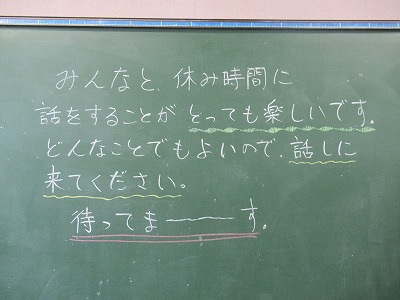 みんなと、休み時間に
話をすることが とっても楽しいです。
どんなことでもよいので、話しに
来てください。
待ってま―――す。